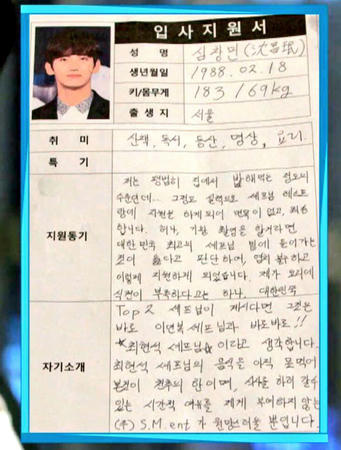 입사지원서
성 명 심창민(沈昌珉)
생년월일 1988. 02. 18
키/몸무게 183 / 69kg
출 생 지 서울
취 미 산책, 독서, 등산, 명상, 요리
특 기
지원동기
저는 평범히 집에서 밥해먹는 정도의
수준인데... 그정도 실력으로 셰프님 레스토
랑에 지원을 하게되어 면목이 없고, 죄송
합니다. 허나, 기왕 촬영을 할거라면
대한민국 최고의 셰프님 밑에 들어가는
것이 옳다고 판단하여, 염치 불구하고
이렇게 지원하게 되었습니다. 제가 요리에
식견이 부족하다고는 하나, 대한민국
자기소개
Top 2 셰프님이 계시다면 그것은
바로 이연복 셰프님과 바로바로!!
★최현석 셰프님☆이라고 생각합니다.
최현석 셰프님의 음식을 아직 못먹어
본것이 천추의 한이며, 식사를 하러 갈수
있는 시간적 여유를 제게 부여하지 않는
(주) S.M.ent 가 원망스러울 뿐입니다.